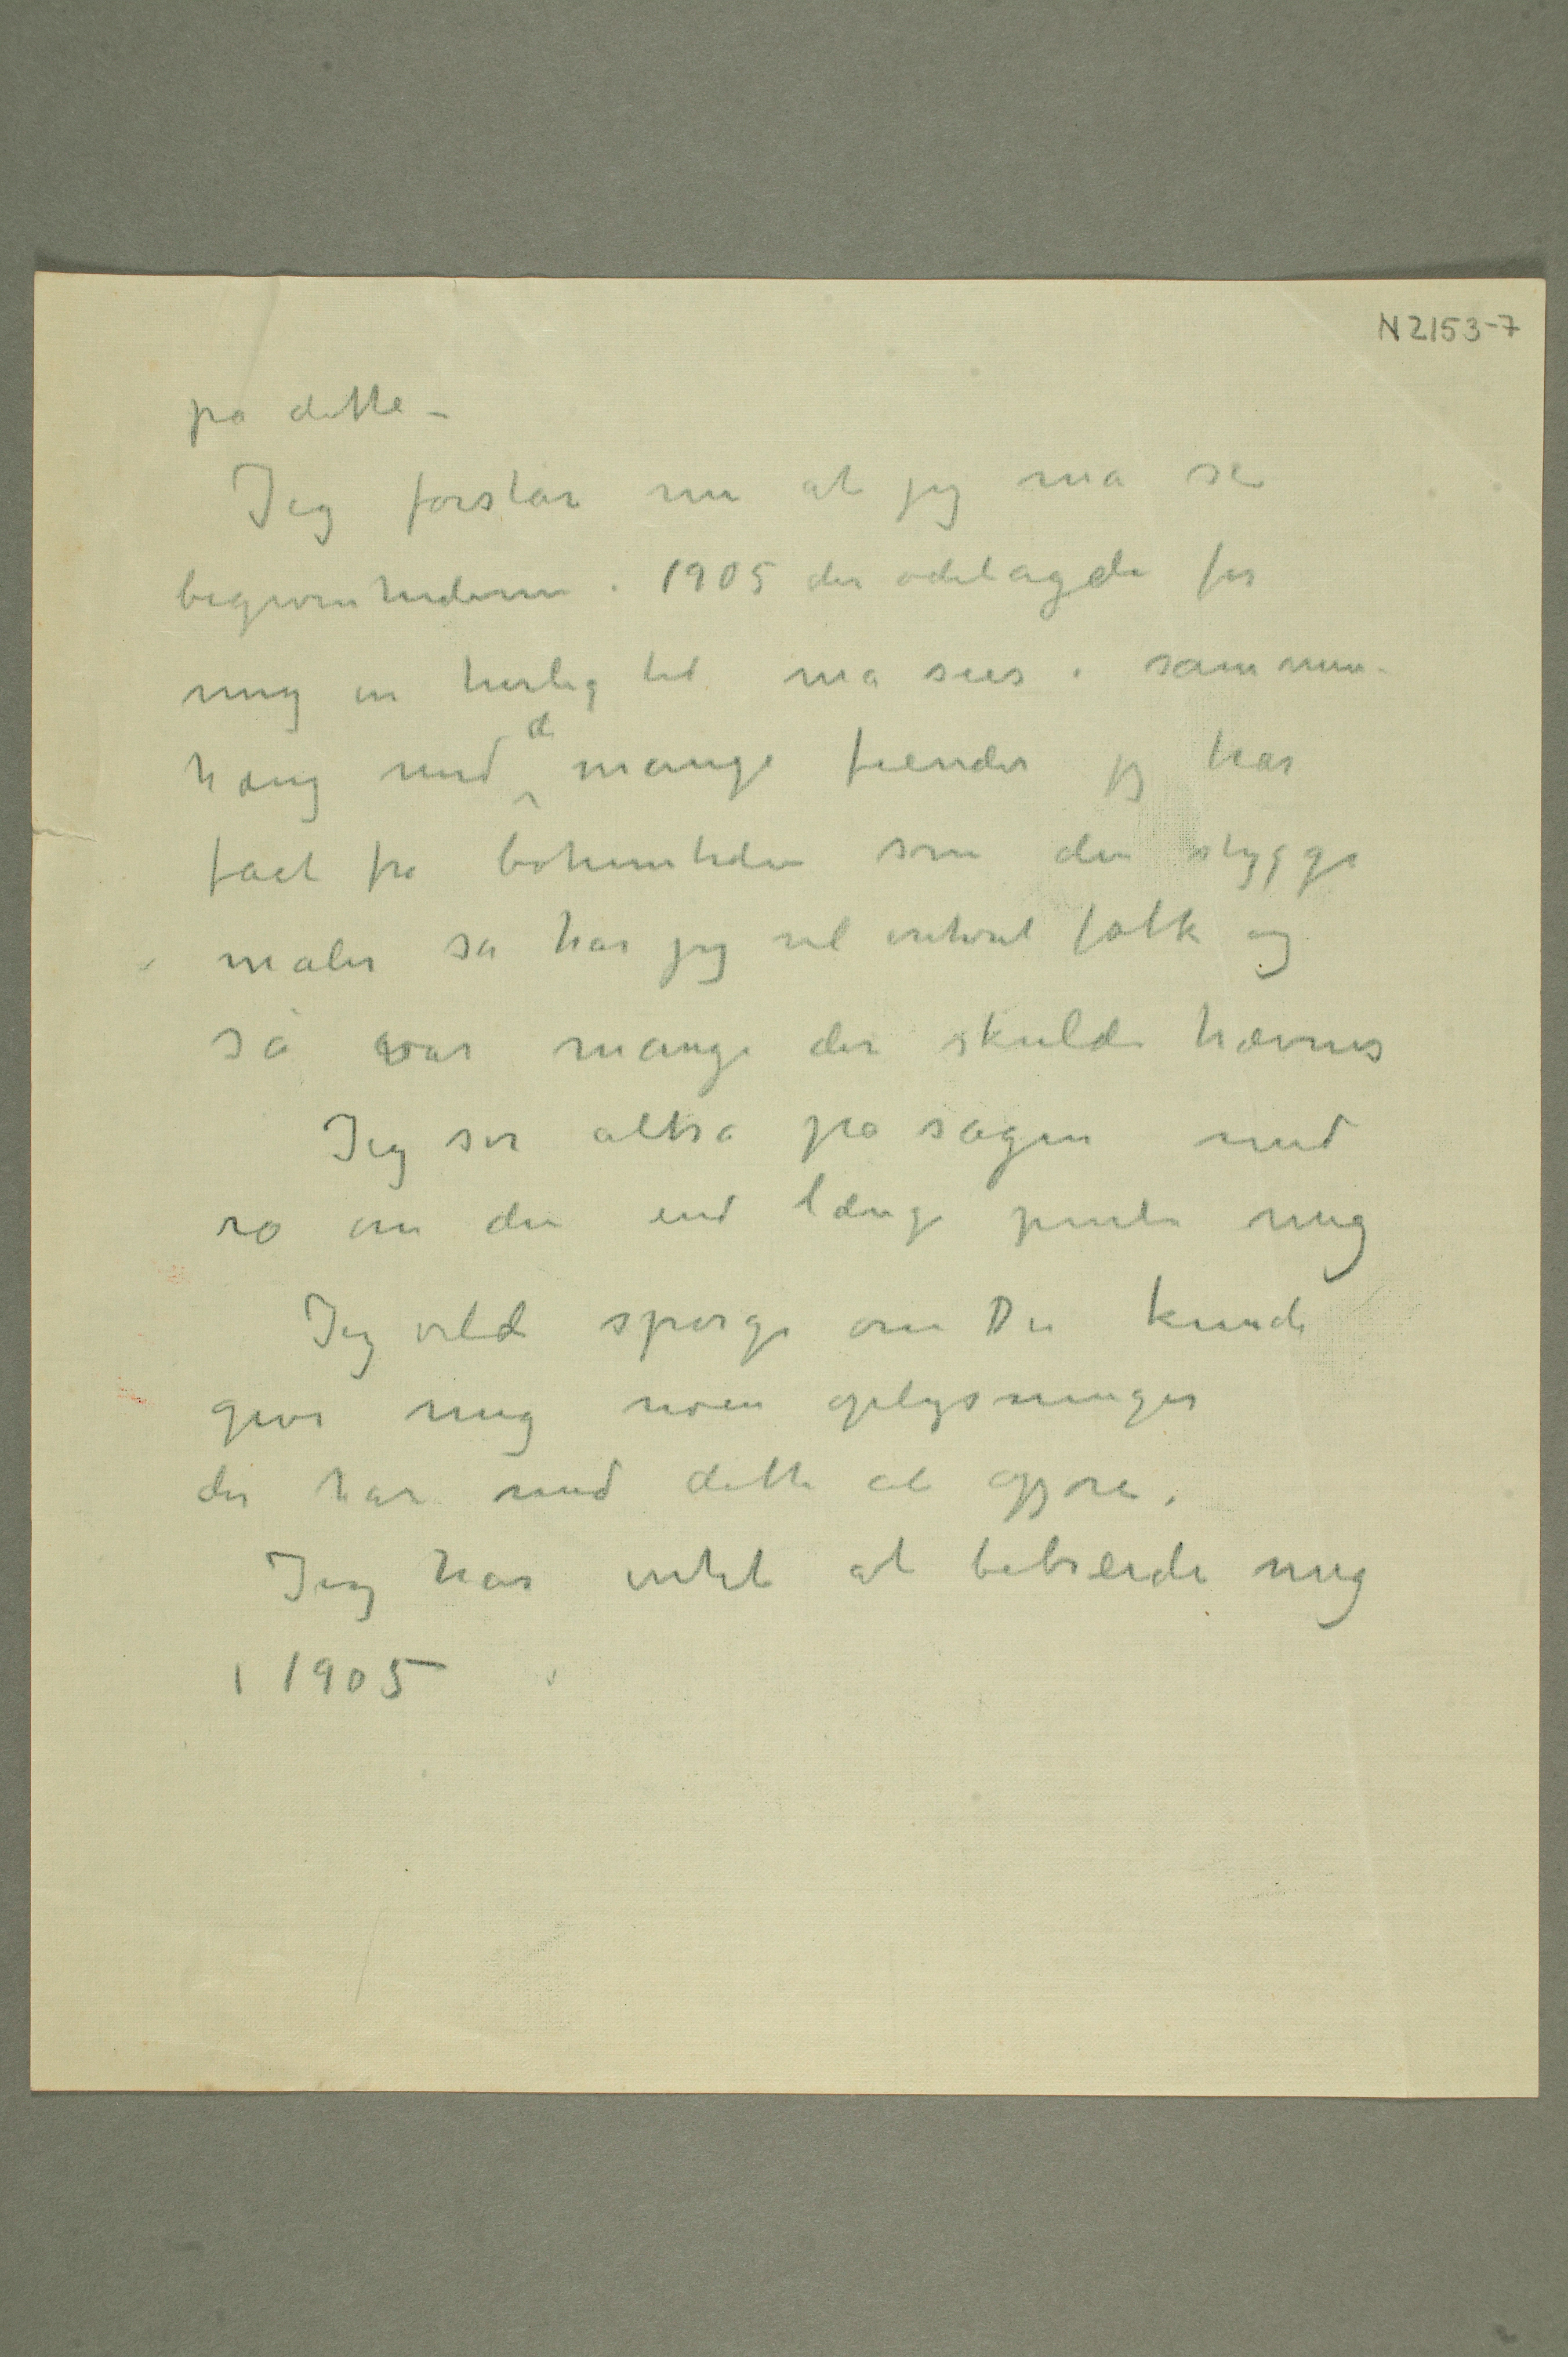 N 2153-7
på dette –
Jeg forstår nu at jeg må se
begivenhederne i 1905 der ødelagde for
mig en herlig tid må sees i sammen-
hæng med de mange fiender jeg har
fået fra bohemtiden som den stygge
maler så har jeg vel ertret folk og
så var mange der skulde hævnes
Jeg ser altså på sagen med
ro om den end længe pinte mig
Jeg vilde spørge om Du kunde
give mig noen oplysninger
der har med dette at gjøre.
Jeg har intet at bebreide mig
i 1905